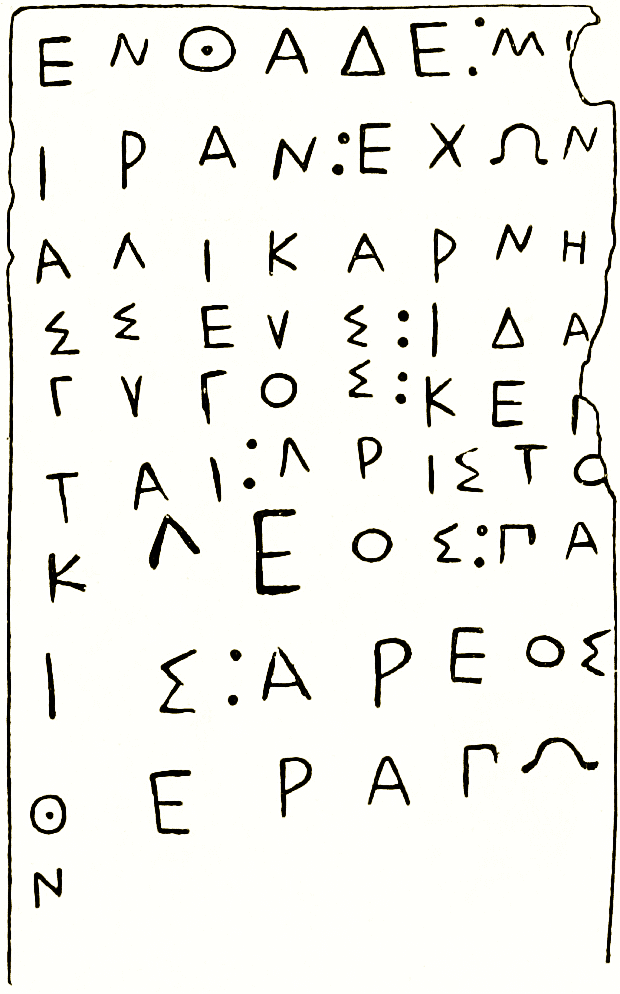 ΕΝΘΑΔΕ:Μ
ΙΡΑΝ:ΕΧΩΝ
ΑΛΙΚΑΡΝΗ
ΣΣΕΥΣ:ΙΔΑ
ΓΥΓΟΣ:ΚΕ
ΤΑΙ:ΛΡΙΣΤΟ
ΚΛΕΟΣ:ΠΑ
ΙΣ:ΑΡΕΟΣ
ΘΕΡΑΠΩ
Ν